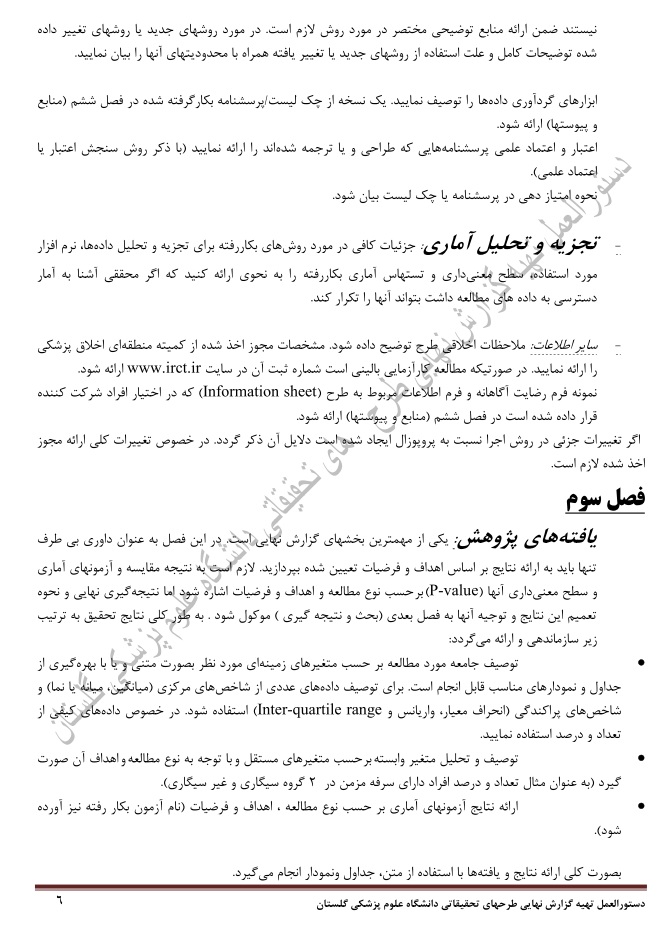 نیستند ضمن ارائه منابع توضیحی مختصر در مورد روش لازم است. در مورد روشهای جدید یا روشهای تغییر داده
شده توضیحات کامل و علت استفاده از روشهای جدید یا تغییر یافته همراه با محدودیتهای آنها را بیان نمایید.
ابزارهای گردآوری داده‌ها را توصیف نمایید. یک نسخه از چک لیست/پرسشنامه بکارگرفته شده در فصل ششم (منابع
و پیوستها) ارائه شود.
اعتبار و اعتماد علمی پرسشنامه‌هایی که طراحی و یا ترجمه شده‌اند را ارائه نمایید (با ذکر روش سنجش اعتبار یا
اعتماد علمی).
نحوه امتیاز دهی در پرسشنامه یا چک لیست بیان شود.
- تجزیه و تحلیل آماری: جزئیات کافی در مورد روش‌های بکاررفته برای تجزیه و تحلیل داده‌ها، نرم افزار
مورد استفاده، سطح معنی‌داری و تستهاس آماری بکاررفته را به نحوی ارائه کنید که اگر محققی آشنا به آمار
دسترسی به داده های مطالعه داشت بتواند آنها را تکرار کند.
- سایر اطلاعات: ملاحظات اخلاقی طرح توضیح داده شود. مشخصات مجوز اخذ شده از کمیته منطقه‌ای اخلاق پزشکی
را ارائه نمایید. در صورتیکه مطالعه کارآزمایی بالینی است شماره ثبت آن در سایت www.irct.ir ارائه شود.
نمونه فرم رضایت آگاهانه و فرم اطلاعات مربوط به طرح (Information sheet) که در اختیار افراد شرکت کننده
قرار داده شده است در فصل ششم (منابع و پیوستها) ارائه شود.
اگر تغییرات جزئی در روش اجرا نسبت به پروپوزال ایجاد شده است دلایل آن ذکر گردد. در خصوص تغییرات کلی ارائه مجوز
اخذ شده لازم است.
فصل سوم
یافته‌های پژوهش: یکی از مهمترین بخشهای گزارش نهایی است. در این فصل به عنوان داوری بی طرف
تنها باید به ارائه نتایج بر اساس اهداف و فرضیات تعیین شده بپردازید. لازم است به نتیجه مقایسه و آزمونهای آماری
و سطح معنی‌داری آنها (P-value) بر حسب نوع مطالعه و اهداف و فرضیات اشاره شود اما نتیجه‌گیری نهایی و نحوه
تعمیم این نتایج و توجیه آنها به فصل بعدی (بحث و نتیجه گیری ) موکول شود . به طور کلی نتایج تحقیق به ترتیب
زیر سازماندهی و ارائه می‌گردد:
• توصیف جامعه مورد مطالعه بر حسب متغیرهای زمینه‌ای مورد نظر بصورت متنی و یا با بهره‌گیری از
جداول و نمودارهای مناسب قابل انجام است. برای توصیف داده‌های عددی از شاخص‌های مرکزی (میانگین، میانه یا نما) و
شاخص‌های پراکندگی (انحراف معیار، واریانس و Inter-quartile range) استفاده شود. در خصوص داده‌های کیفی از
تعداد و درصد استفاده نمایید.
• توصیف و تحلیل متغیر وابسته بر حسب متغیرهای مستقل و با توجه به نوع مطالعه و اهداف آن صورت
گیرد (به عنوان مثال تعداد و درصد افراد دارای سرفه مزمن در ۲ گروه سیگاری و غیر سیگاری).
• ارائه نتایج آزمونهای آماری بر حسب نوع مطالعه ، اهداف و فرضیات (نام آزمون بکار رفته نیز آورده
شود).
بصورت کلی ارائه نتایج و یافته‌ها با استفاده از متن، جداول ونمودار انجام می‌گیرد.
دستورالعمل تهیه گزارش نهایی طرحهای تحقیقاتی دانشگاه علوم پزشکی گلستان
۶
دستورالعمل تهیه گزارش نهایی طرح های تحقیقاتی دانشگاه علوم پزشکی گلستان